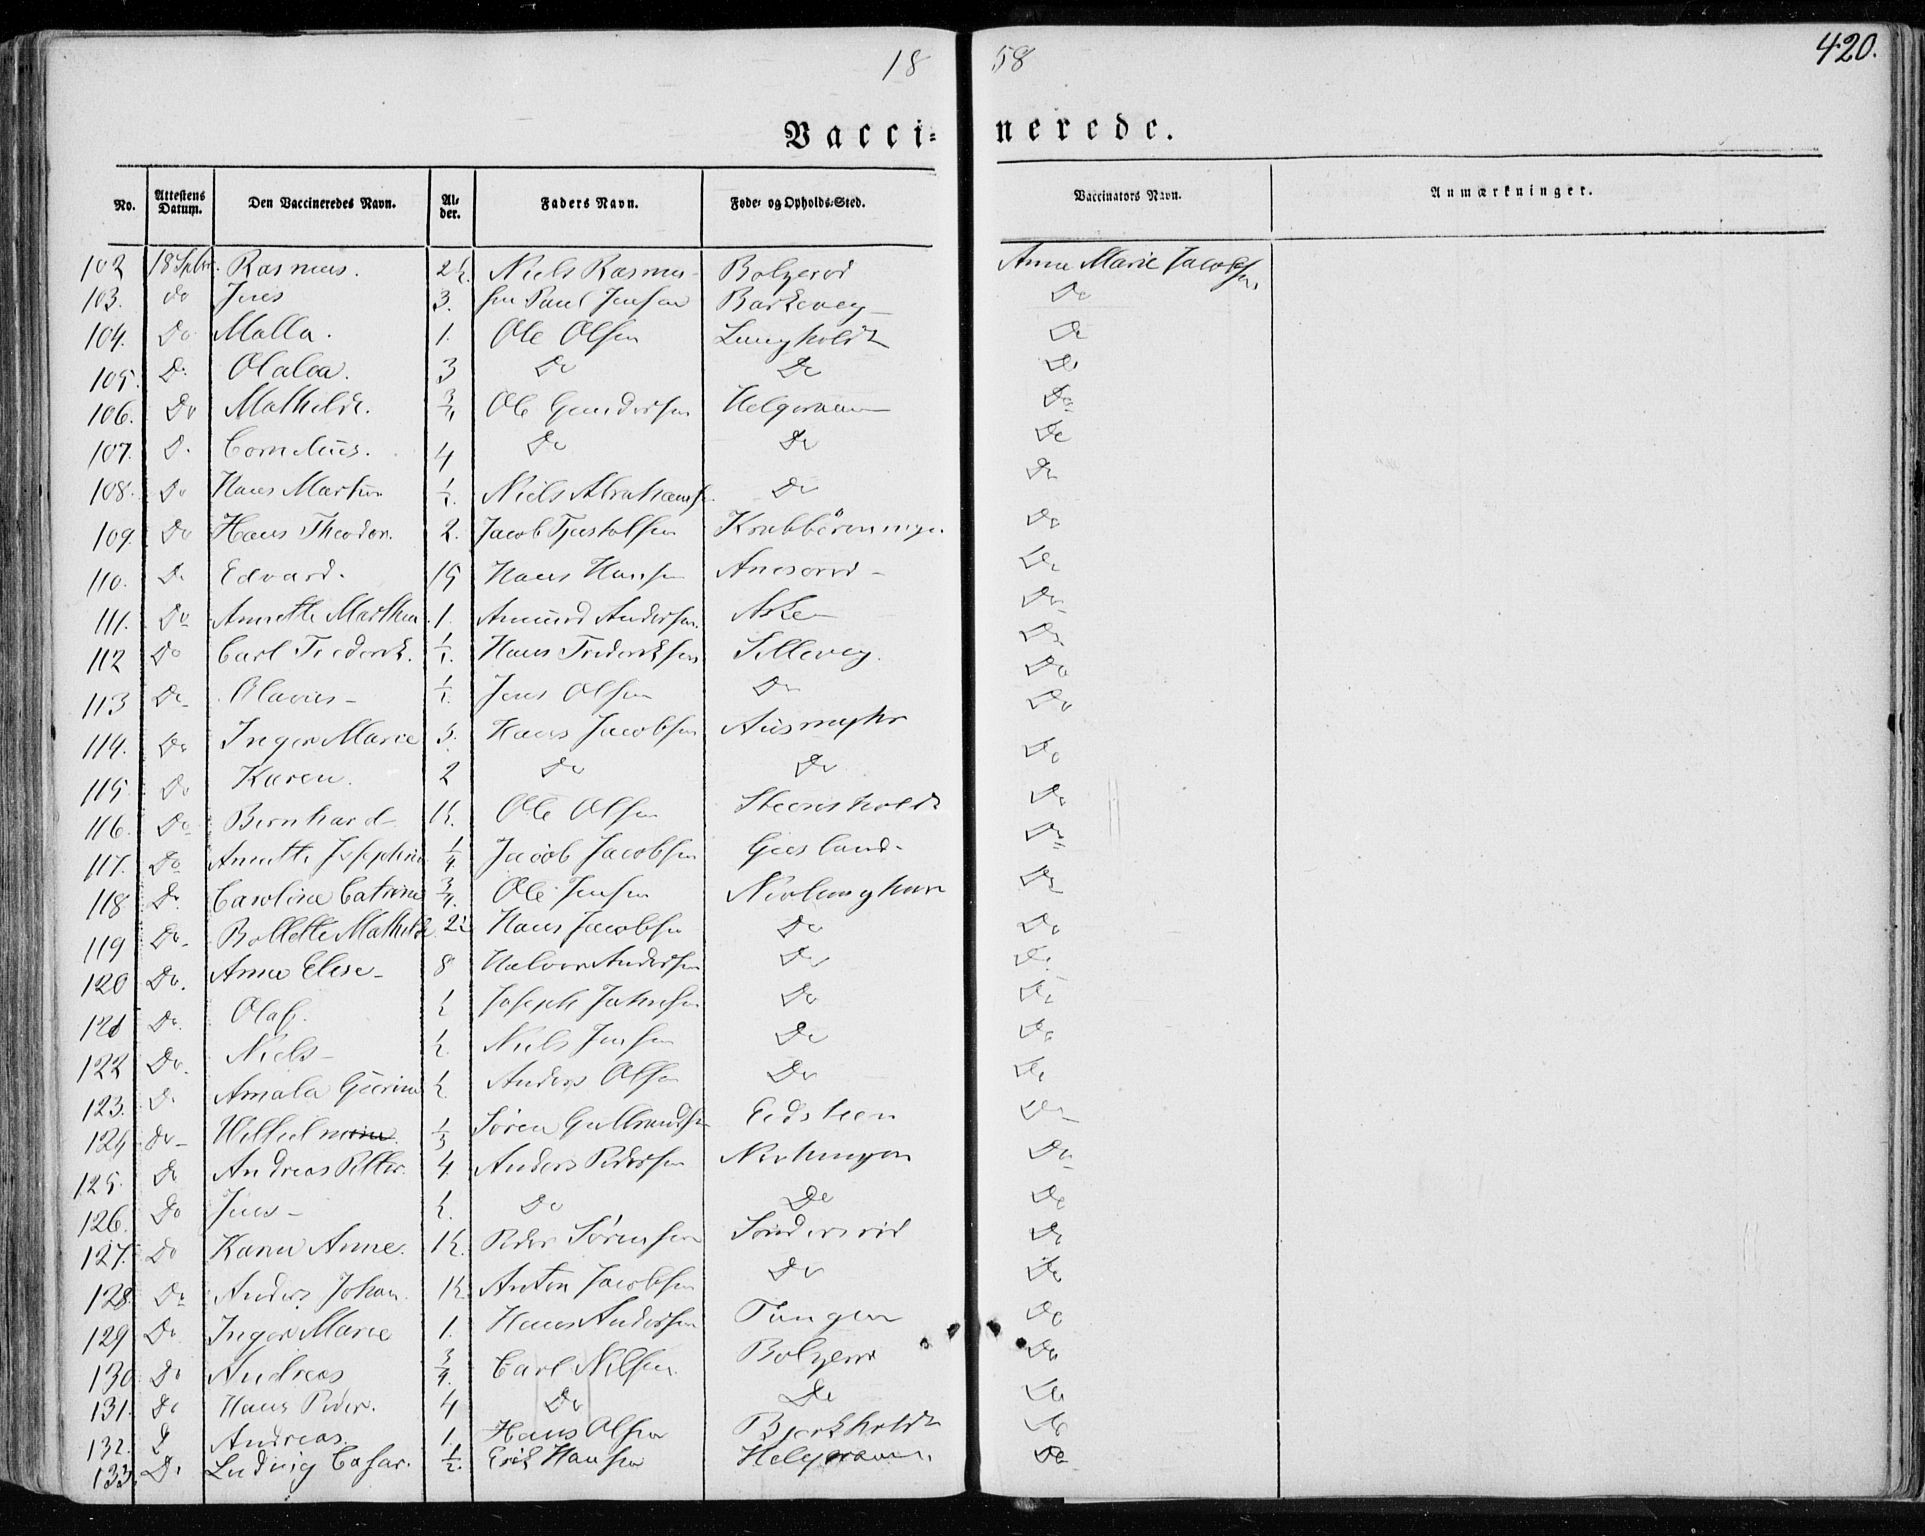 18 58
420.
Vacci- nerede.
No. Attestens Datum. Den Vaccineredes Navn. Al- der. Faders Navn. Føde- og Opholds-Sted. Vaccinators Navn. Anmærkninger.
102 18 Sptbr. Rasmus. 2½ Niels Rasmus- Bolzerød Anne Marie Jacobsen
103. do Jens 3. sen Paul Jensen Barkevig Do
104. Do Malla. 1. Ole Olsen Do
105. Do Olalea. 3 Do Do Do
106. Do Mathilde. 3/4 Ole Gundersen Helgeraaen Do
107. Do Cornelius. 4 Do Do Do
108. Do Hans Martin Niels Abrahams. Do Do
109. Do Hans Theodor. 2. Jacob Do
110. Do Edvard. 15 Hans Hansen Do
111. Do Annette Marthea 1. Amund Andersen. Aske Do
112 Do Carl Frederik. Hans Frederiksen Do
113 Do Olavus Jens Olsen Do Do
114. Do Inger Marie 3. Hans Jacobsen Do
115 Do Karen. 2 Do Do Do
116. Do Bernhard 1½. Ole Olsen Steensholdt Do
117. Do Annette Josephine 1/4 Jacob Jacobsen Do
118 Do Caroline Catrine 3/4. Ole Jensen Do
119 Do Bollette Mathilde 2½ Hans Jacobsen Do Do
120 Do. Anne Elise 8 Halvor Andersen Do Do
121 Do. Olaf. ½ Joseph Johnsen Do Do
122 Do. Niels ½. Niels Jensen Do Do
123. Do Amala Gurine ½. Anders Olsen Do Do
124 Do Wilhelm 1/3 Søren Gulbrandsen Eidsteen Do
125. Do Andreas Petter. 4. Anders Pedersen Do
126. Do Jens ½. Do Do Do
127. Do Karen Anne. 1½. Peder Sørensen Søndersrød Do
128. Do Anders Johan. 1½ Anton Jacobsen Do Do
129 Do Inger Marie 1. Hans Andersen Tangen Do
130 Do Andreas 3/4. Carl Nilsen. Do
131. Do Hans Peder. 4 Do Do Do
132. Do Andreas. 1. Hans Olsen Bjerkholdt Do
133. Do Ludvig Casar. ½. Erik Hansen Helgeraaen. Do